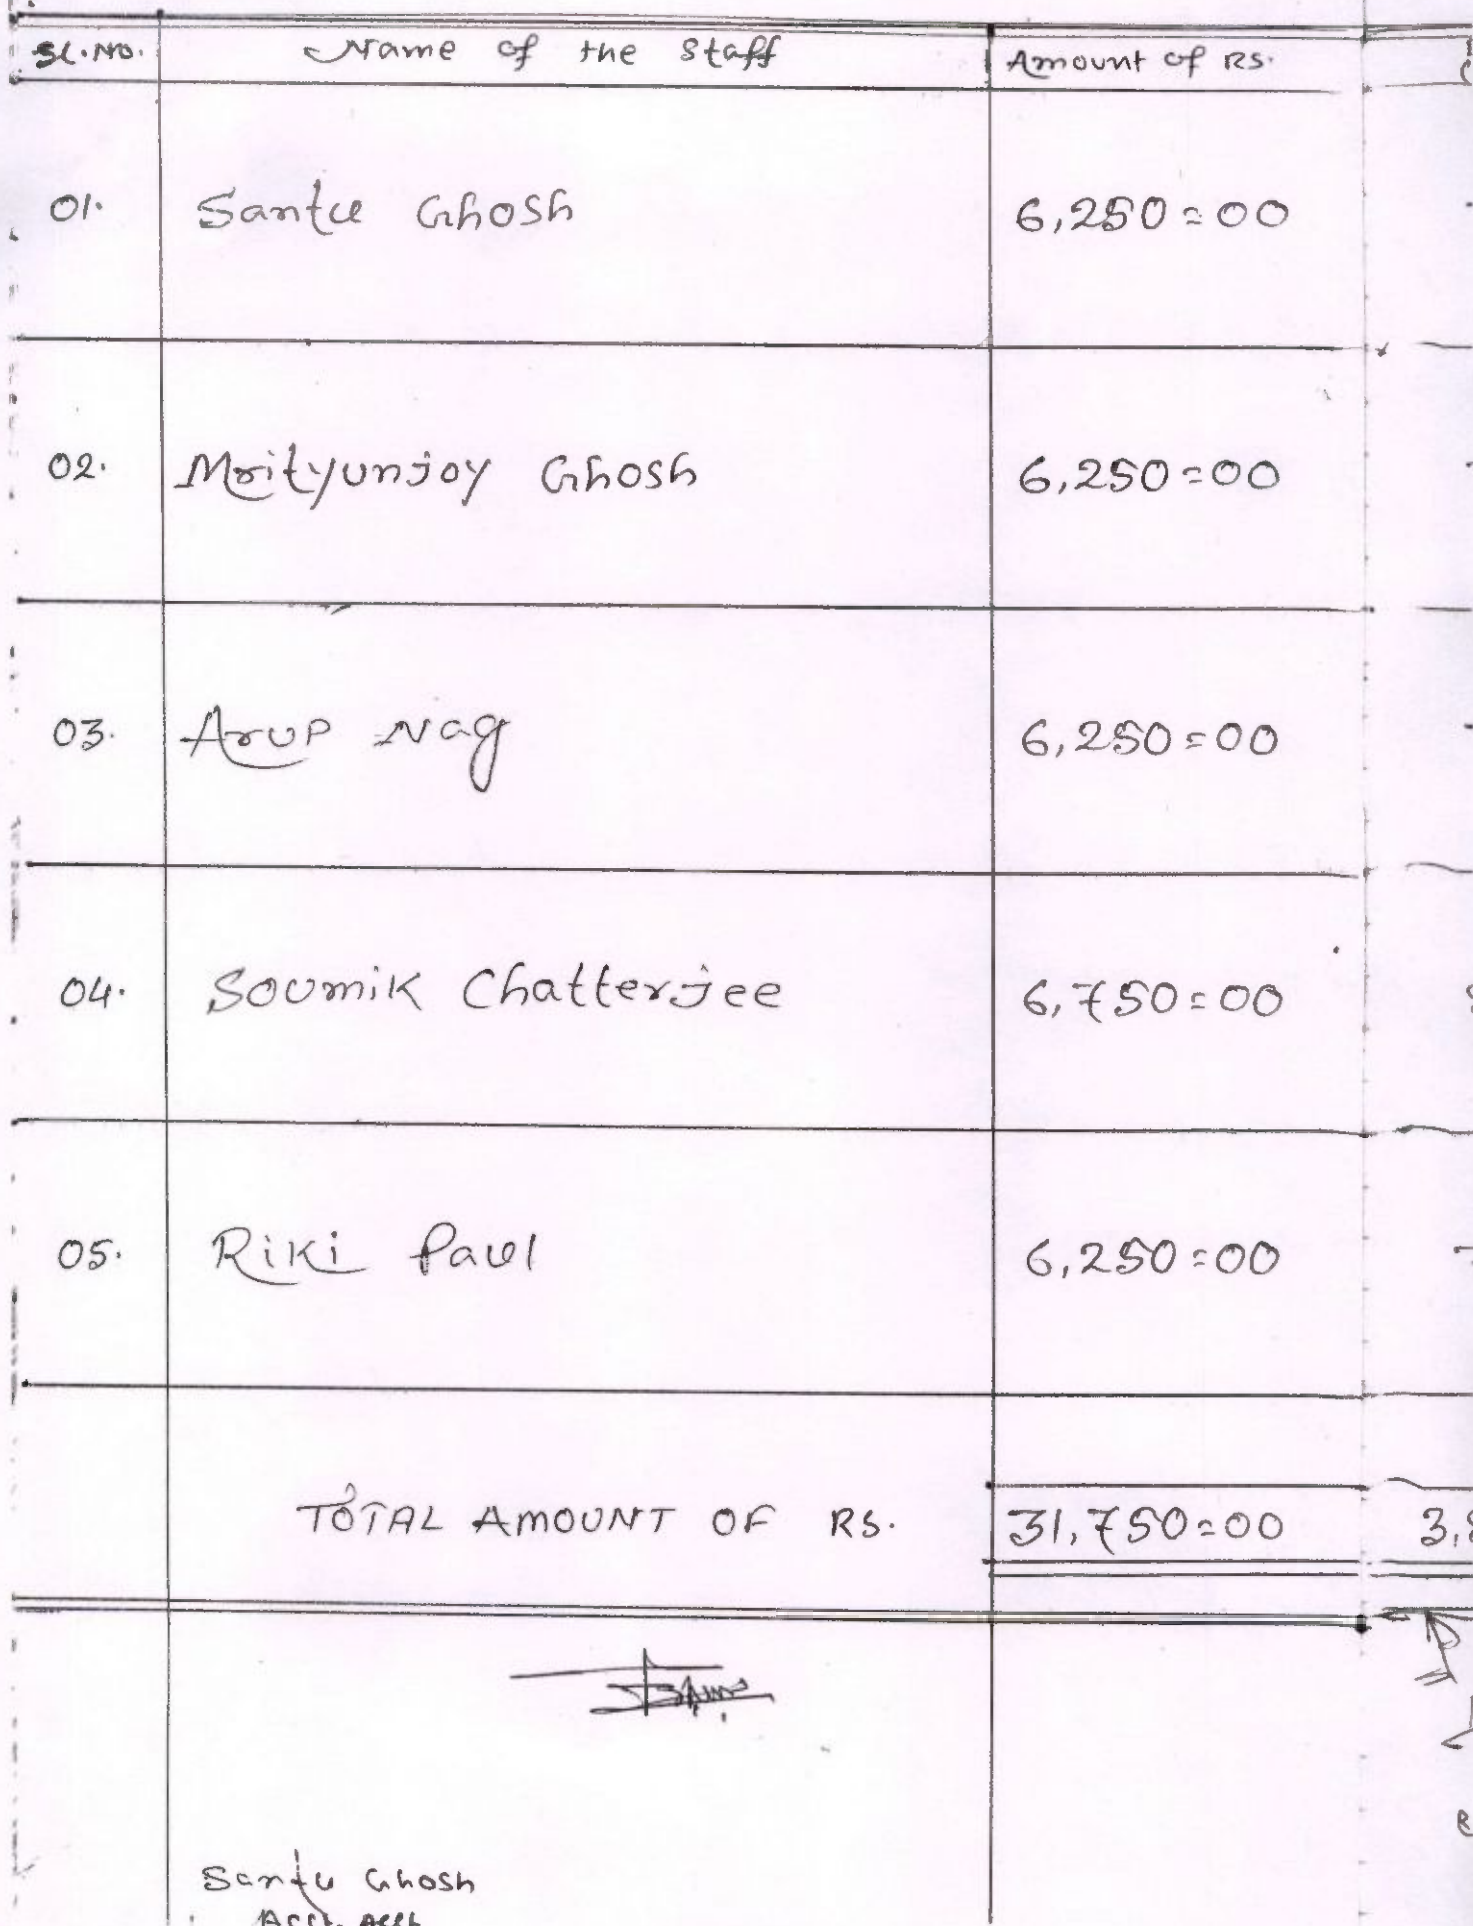 SL.NO. Name of the Staff Amount of RS.
01. Santu Ghosh 6,250=00
02. Mrityunjoy Ghosh 6,250=00
03. Arup Nag 6,250=00
04. Soumik Chatterjee 6,750=00
05. Riki Paul 6,250=00
TOTAL AMOUNT OF RS. 31,750=00
Santu Ghosh